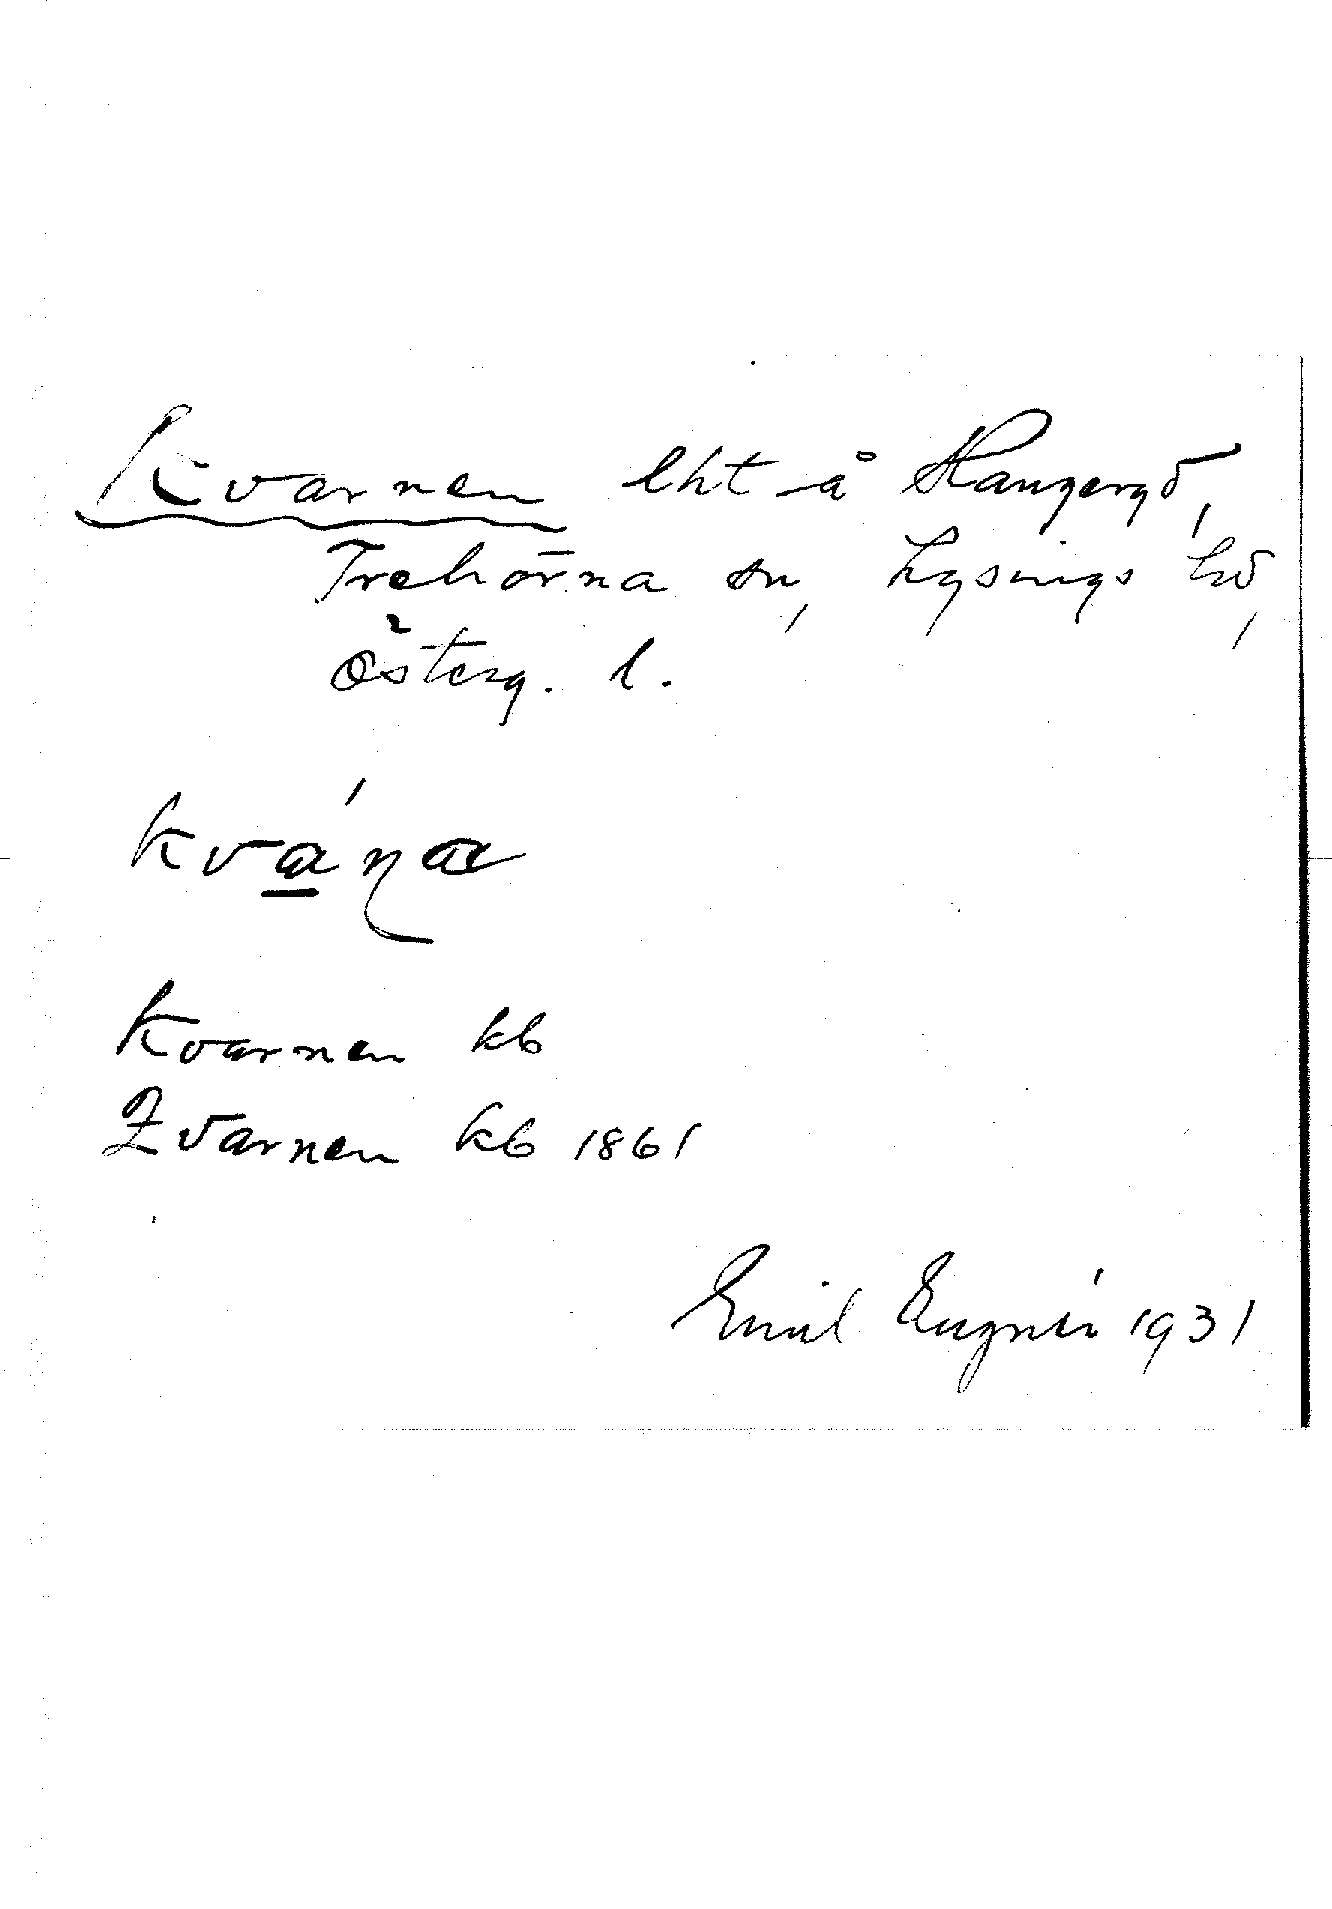 Kvarnen lht å Haugergd,
Trehörna sn, Lysings hd,
Österg. l.
kvána
Kvarnen kb
Qvarnen kb 1861
Emil Eugnér 1931